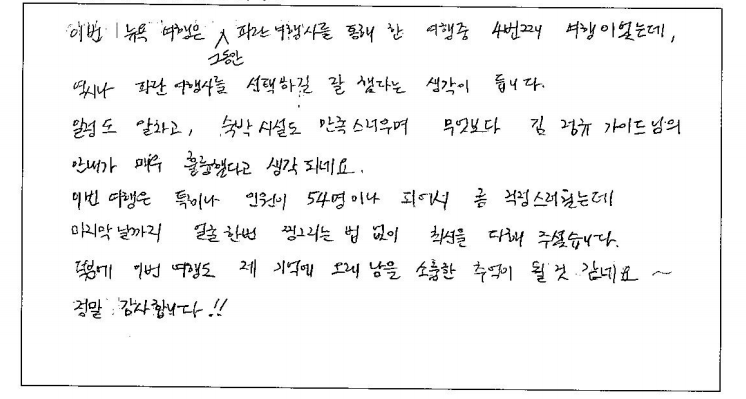 이번 뉴욕 여행은 그동안 파란 여행사를 통해 한 여행중 4번째 여행이었는데,
역시나 파란 여행사를 선택하길 잘 했다는 생각이 듭니다.
일정도 알차고, 숙박 시설도 만족스러우며 무엇보다 김정규 가이드님의
안내가 매우 훌륭했다고 생각되네요.
이번 여행은 특히나 인원이 54명이나 되어서 좀 걱정스러웠는데
마지막날까지 얼굴한번 찡그리는 법 없이 최선을 다해 주셨습니다.
덕분에 이번 여행도 제 기억에 오래 남을 소중한 추억이 될 것 같네요 ~
정말 감사합니다!!